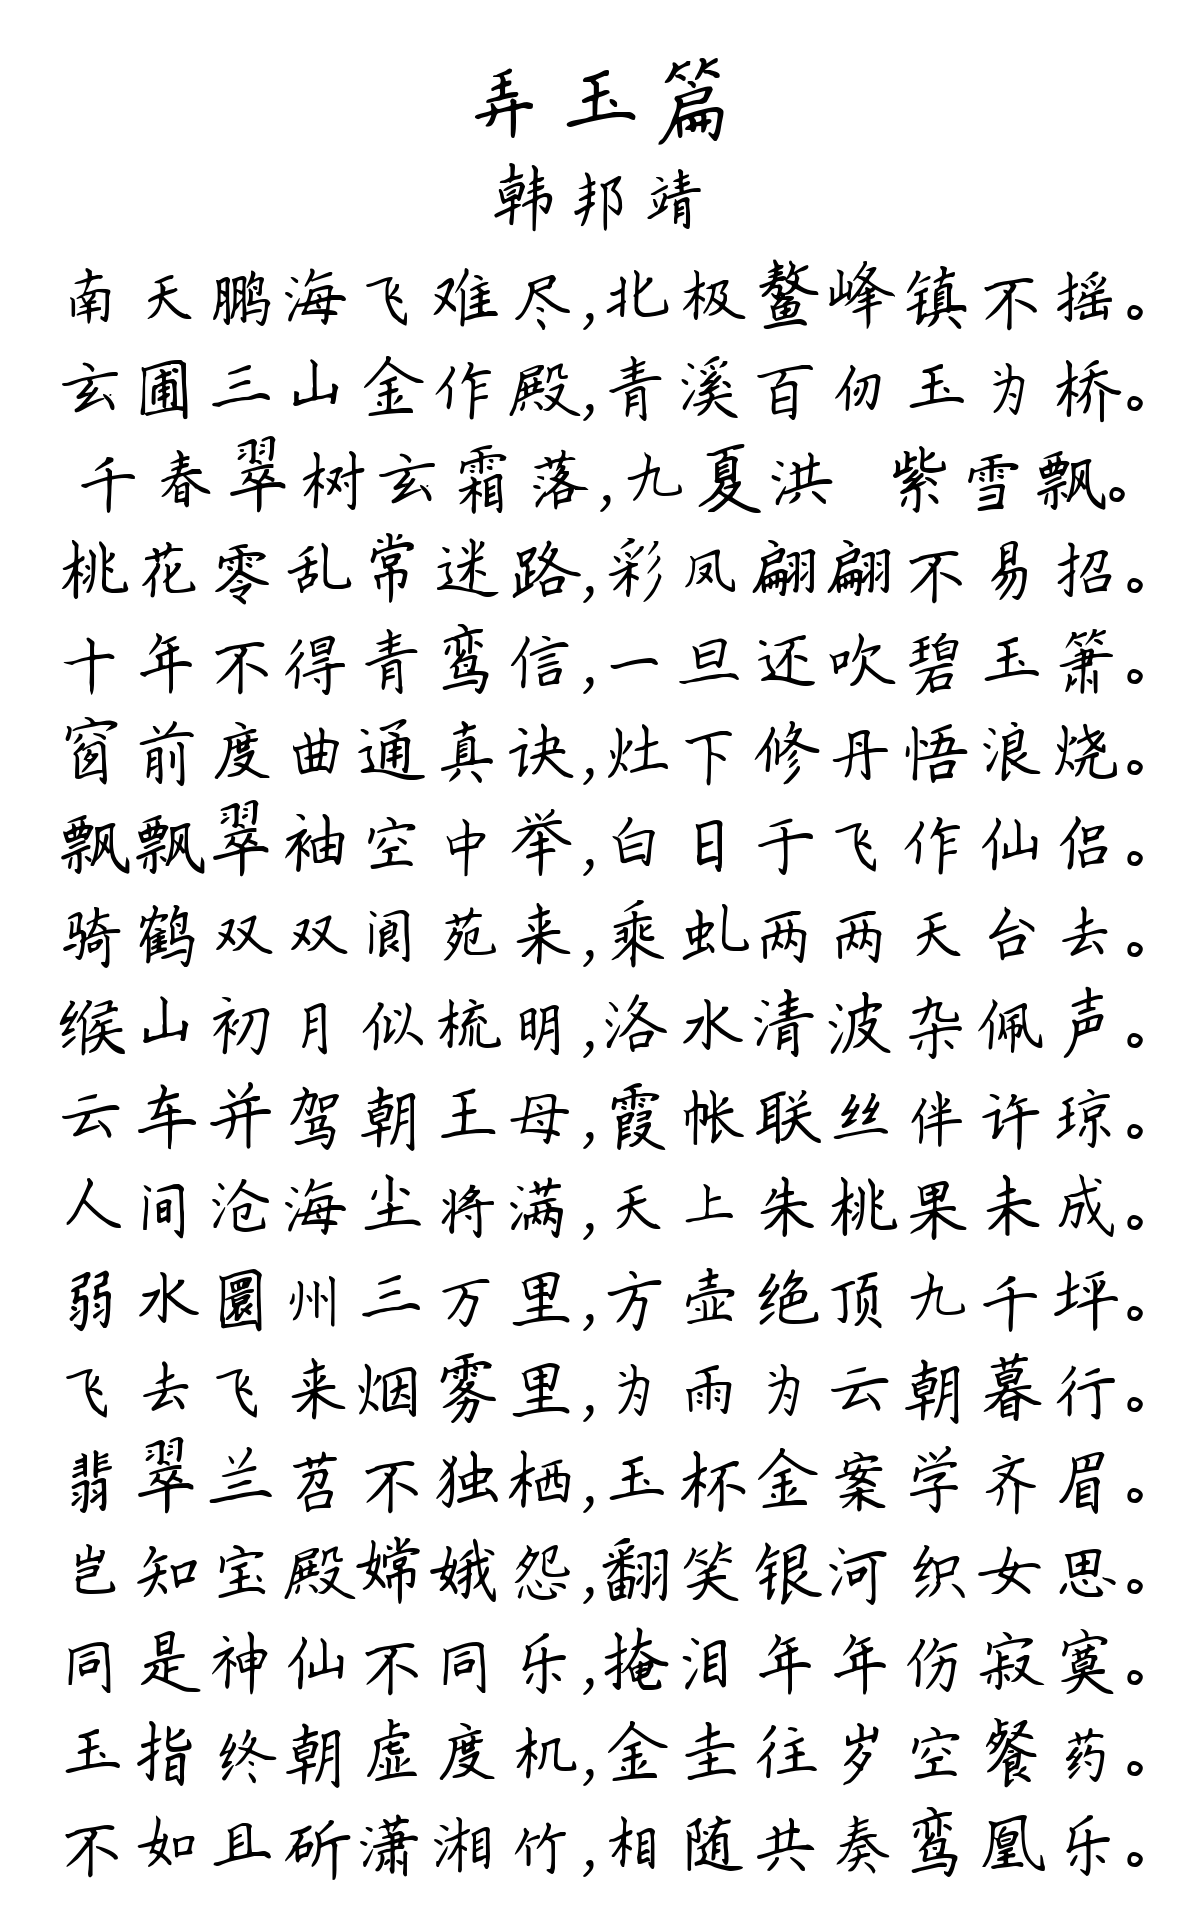 弄玉篇
韩邦靖
南天鹏海飞难尽,北极鳌峰镇不摇。
玄圃三山金作殿,青溪百仞玉为桥。
千春翠树玄霜落,九夏洪 紫雪飘。
桃花零乱常迷路,彩凤翩翩不易招。
十年不得青鸾信,一旦还吹碧玉箫。
窗前度曲通真诀,灶下修丹悟浪烧。
飘飘翠袖空中举,白日于飞作仙侣。
骑鹤双双阆苑来,乘虬两两天台去。
缑山初月似梳明,洛水清波杂佩声。
云车并驾朝王母,霞帐联丝伴许琼。
人间沧海尘将满,天上朱桃果未成。
弱水圜州三万里,方壶绝顶九千坪。
飞去飞来烟雾里,为雨为云朝暮行。
翡翠兰苕不独栖,玉杯金案学齐眉。
岂知宝殿嫦娥怨,翻笑银河织女思。
同是神仙不同乐,掩泪年年伤寂寞。
玉指终朝虚度机,金圭往岁空餐药。
不如且斫潇湘竹,相随共奏鸾凰乐。